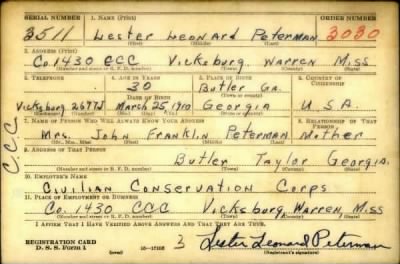 SERIAL NUMBER 1. NAME (Print) ORDER NUMBER
3511 Lester Leonard Peterman 3030
(First) (Middle) (Last)
2. ADDRESS (Print)
Co. 1430 CCC Vicksburg, Warren Miss
(Number and street or R. F. D. number) (Town) (County) (State)
3. TELEPHONE 4. AGE IN YEARS 5. PLACE OF BIRTH 6. COUNTRY OF CITIZENSHIP
30 Butler Ga.
DATE OF BIRTH (Town) (County)
Vicksburg 2677J March 25, 1910 Georgia U.S.A.
(Exchange) (Number) (Mo.) (Day) (Yr.) (State or country)
7. NAME OF PERSON WHO WILL ALWAYS KNOW YOUR ADDRESS 8. RELATIONSHIP OF THAT PERSON
Mrs. John Franklin Peterman Mother
(Mr., Mrs., Miss) (First) (Middle) (Last)
9. ADDRESS OF THAT PERSON
Butler Taylor Georgia.
(Number and street or R. F. D. number) (Town) (County) (State)
10. EMPLOYER'S NAME
Civilian Conservation Corps
11. PLACE OF EMPLOYMENT OR BUSINESS
Co. 1430 CCC Vicksburg, Warren, Miss
(Number and street or R. F. D. number) (Town) (County) (State)
I AFFIRM THAT I HAVE VERIFIED ABOVE ANSWERS AND THAT THEY ARE TRUE.
REGISTRATION CARD
D. S. S. Form 1 16-17105 3 Lester Leonard Peterman
(Registrant's signature)
C.C.C.